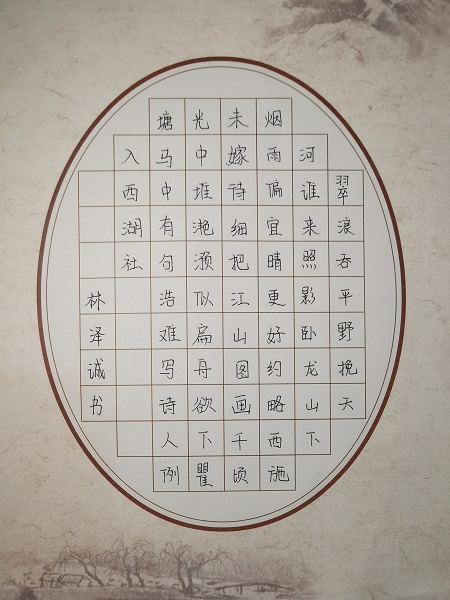 翠浪吞平野挽天
河谁来照影卧龙山下
烟雨偏宜晴更好约略西施
未嫁待细把江山图画千顷
光中堆滟滪似扁舟欲下瞿
塘马中有句浩难写诗人例
入西湖社
林泽诚书